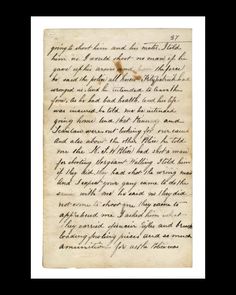 37
going to shoot him and his mates, I told
him no I would shoot no man if he
gave up his arms and promise
he said the police all knew Fitzpatrick had
wronged us and he intended to leave the
force, as he had bad health, and his life
was insured he told me he intended
going home and that Kennedy and
Scanlan were out looking for our camp
and also about the other Police he told
me the N.S.W Police had shot a man
for shooting Sergeant Walling I told him
if they did, they had shot the wrong man
And I expect your gang came to do the
same with me he said no they did
not come to shoot you they came to
apprehend me I asked him what
they carried spencer rifles and breech
loading fowling pieces and so much
ammunition for as the Police was